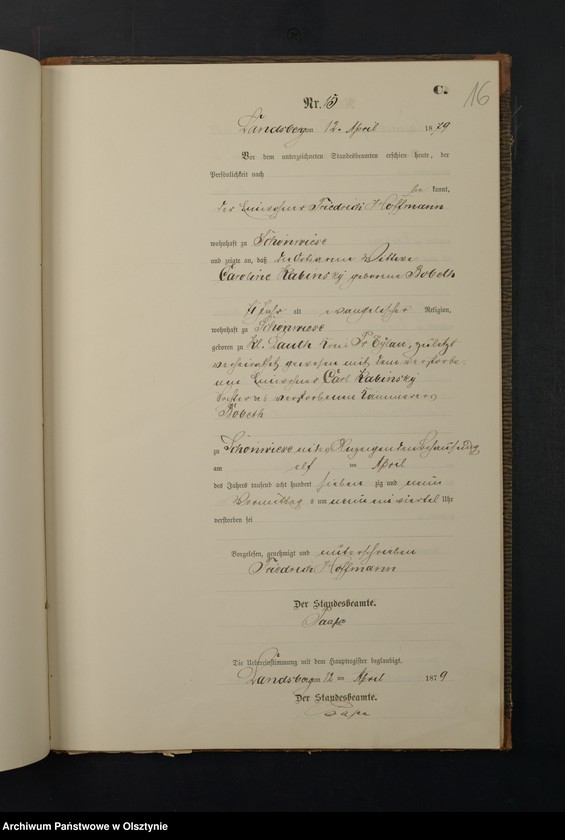 C.
16
Nr. 15
Landsberg am 12. April 1879
Vor dem unterzeichneten Standesbeamten erschien heute, der
Persönlichkeit nach
be kannt,
der Einwohner Friedrich Hoffmann
wohnhaft zu Schönwiese
und zeigte an, daß die Ortsarme Wittwe
Caroline Kabinsky geborene Bobeth
Jahr alt evangelischer Religion,
wohnhaft zu Schönwiese
geboren zu Kl. Dauth Kreis Pr Eylau, zuletzt
verheirathet gewesen mit dem verstorbe-
nen Einwohner Carl Kabinsky
Tochter des verstorbenen Kämmerers
Bobeth
zu Schönwiese in des Anzeigenden Behausung
am elf ten April
des Jahres tausend acht hundert sieben zig und neun
Vormittag s um neun ein viertel Uhr
verstorben sei
Vorgelesen, genehmigt und unterschrieben
Friedrich Hoffmann
Der Standesbeamte.
Die Uebereinstimmung mit dem Hauptregister beglaubigt.
Landsberg am 12 ten April 1879
Der Standesbeamte.
Archiwum Państwowe w Olsztynie